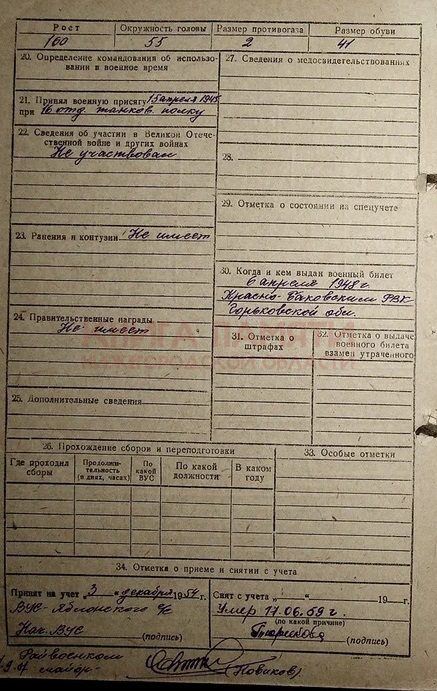 Рост Окружность головы Размер противогаза Размер обуви
160 55 2 41
20. Определение командования об использо-
вании в военное время
21. Принял военную присягу 15 апреля 1945
при 16 отд. танков. полку
22. Сведения об участии в Великой Отече-
ственной войне и других войнах
Не участвовал
23. Ранения и контузии Не имеет
24. Правительственные награды
Не имеет
25. Дополнительные сведения
27. Сведения о медосвидетельствованиях
28.
29. Отметка о состоянии на спецучете
30. Когда и кем выдан военный билет
6 апреля 1948 г.
Красно-Баковским РВК
Горьковской обл.
31. Отметка о
штрафах
32. Отметка о выдаче
военного билета
взамен утраченного
26. Прохождение сборов и переподготовки
Где проходил
сборы
Продолжи-
тельность
(в днях, часах)
По
какой
ВУС
По какой
должности
В каком
году
33. Особые отметки
34. Отметка о приеме и снятии с учета
Принят на учет „3“ декабря 1954 г.
ВУС-Яблонского с/с
Нач. ВУС
(подпись)
Снят с учета „ “ 19 г.
Умер 17.06.59 г.
(по какой причине)
(подпись)
Райвоенком
майор (Новиков)